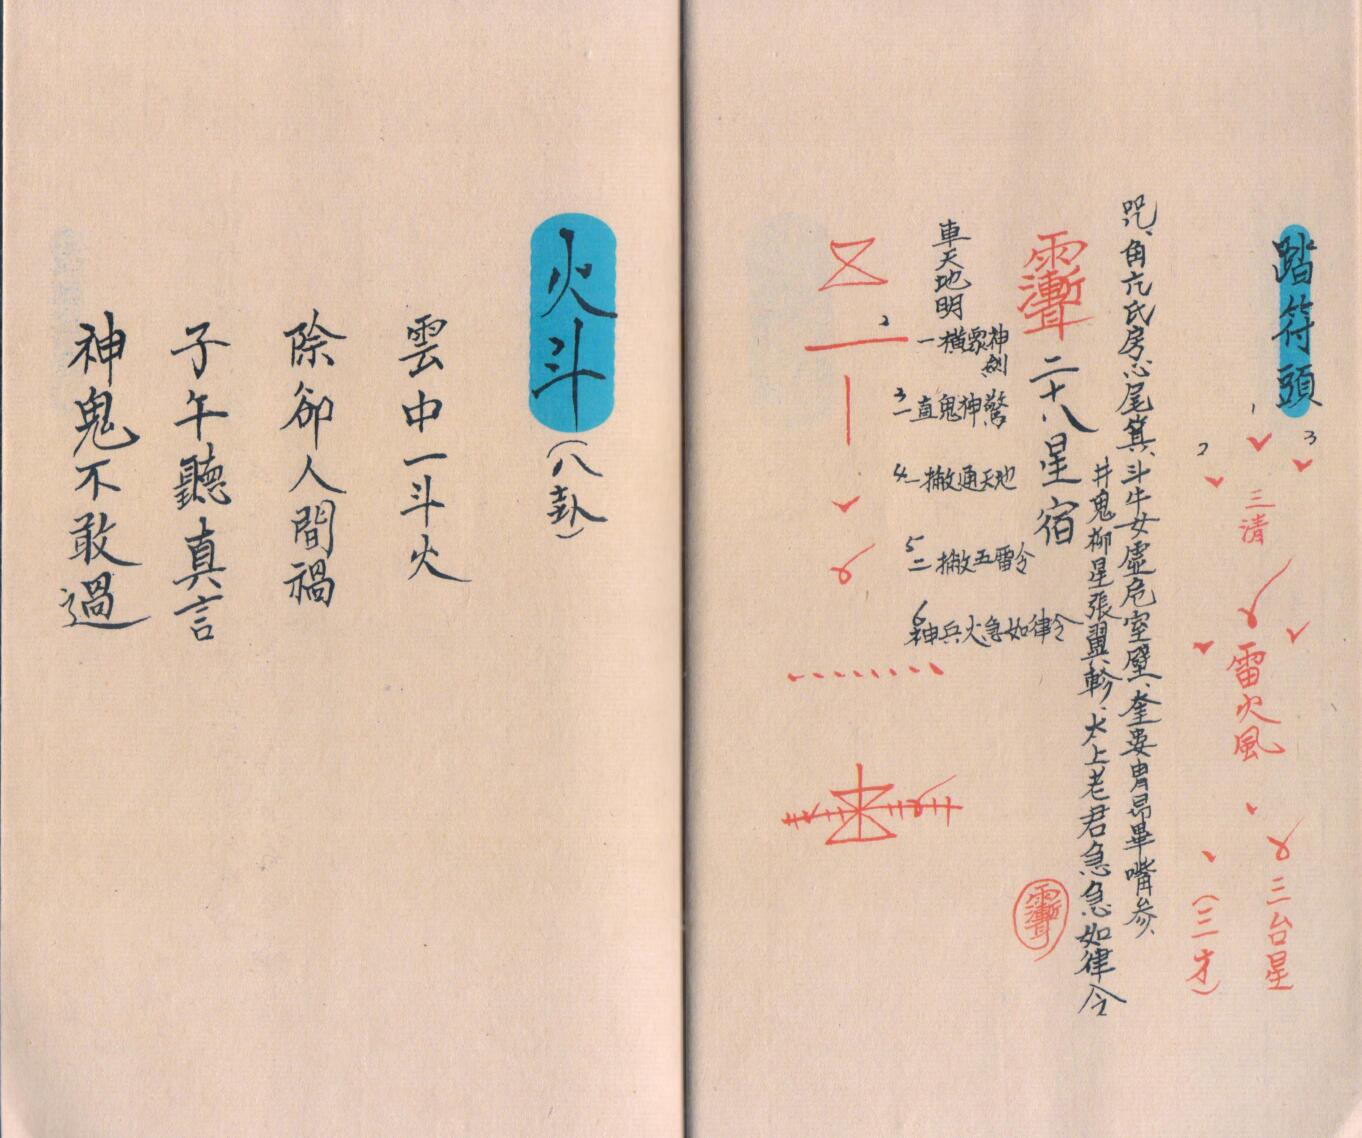 踏符頭
1
2
3
三清
雷火風
三台星
(三才)
咒、角亢氐房心尾箕、斗牛女虛危室壁、奎婁胃昴畢嘴參、
井鬼柳星張翼軫、太上老君急急如律令
二十八星宿
車天地明
2
一橫眾神
3
一直鬼神驚
4
一撇通天地
5
二撇五雷令
6
神兵火急如律令
火斗
(八卦)
雲中一斗火
除卻人間禍
子午聽真言
神鬼不敢過